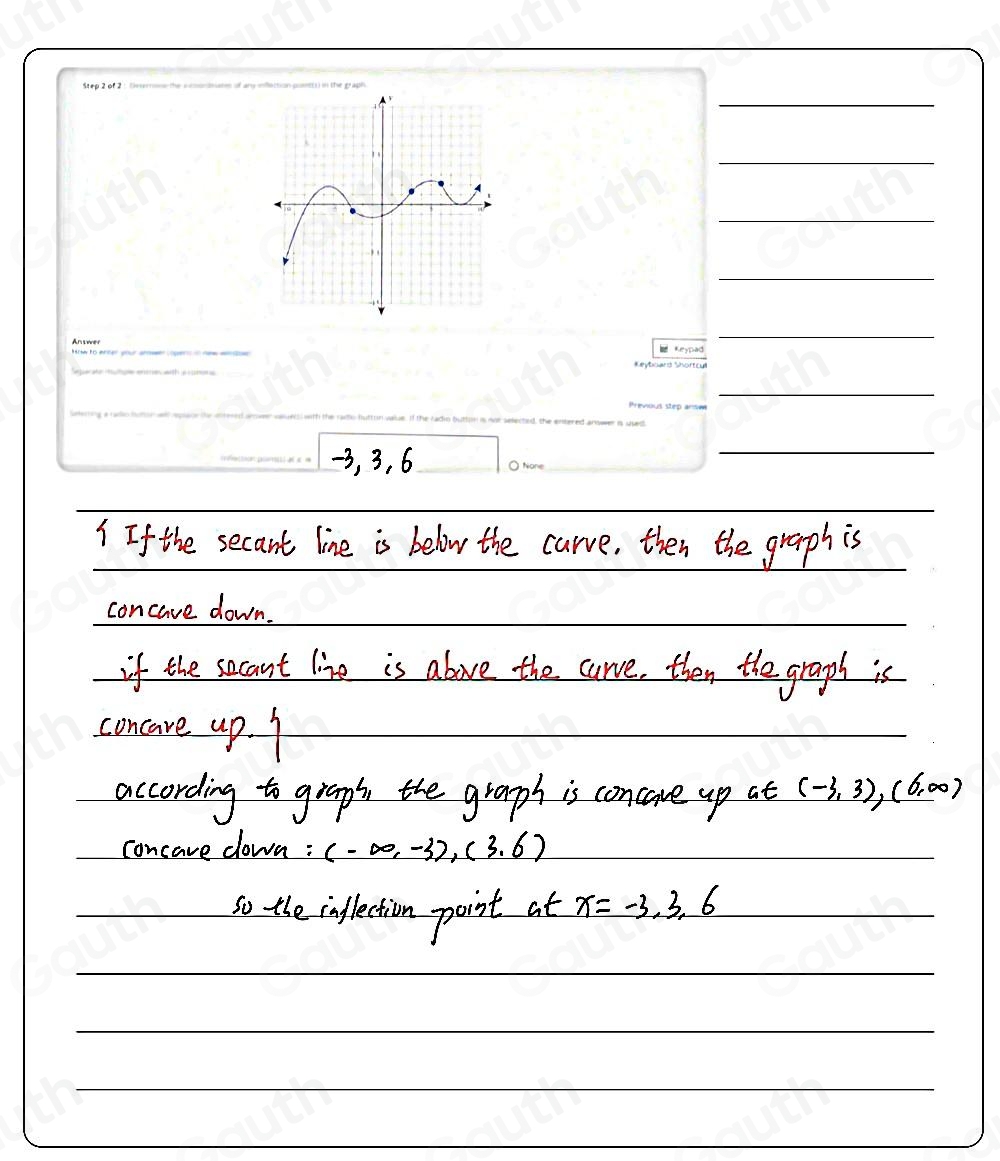 Step 2 of 2 : Determine the x-coordinates of any inflection point(s) in the graph.
y
x
5
10
Answer
How to enter your answer (opens in new window)
Keypad
Keyboard Shortcut
Separate multiple entries with a comma.
Previous step answe
Selecting a radio button will replace the entered answer value(s) with the radio button value. If the radio button is not selected, the entered answer is used.
Inflection point(s) at x = -3, 3, 6
None
If the secant line is below the curve. then the graph is
concave down.
if the secant line is above the curve. then the graph is
concave up.
according to graph, the graph is concave up at (-3, 3), (6, ∞)
concave down : (-∞, -3), (3.6)
so the inflection point at x = -3, 3, 6
Gauth